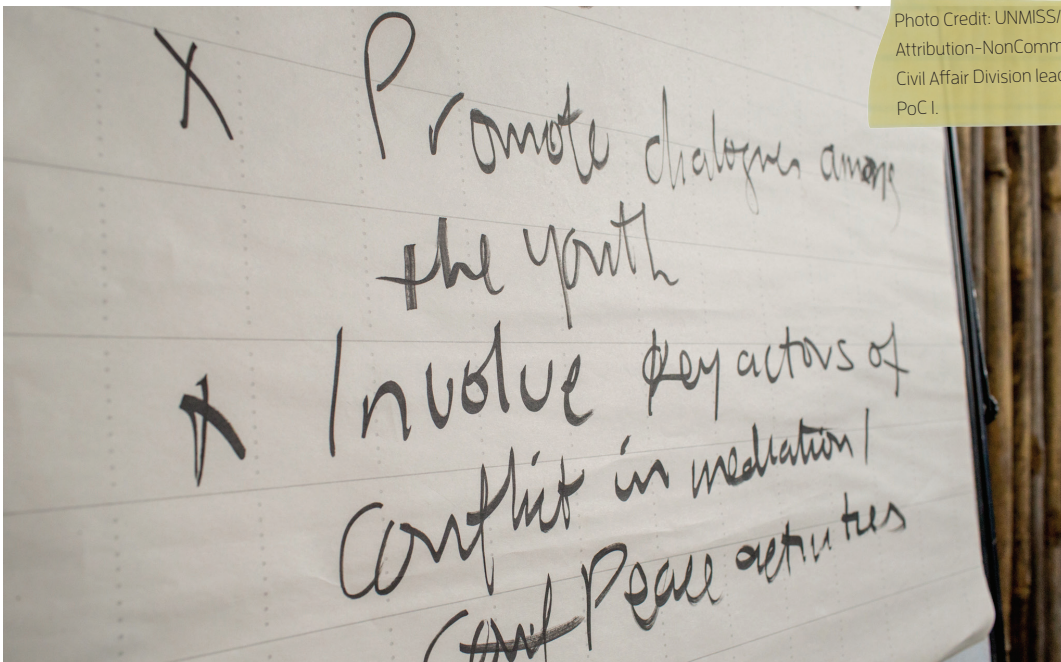 Photo Credit: UNMISS/
Attribution-NonComm
Civil Affair Division lead
PoC I.
X Promote dialogues among
the youth
X Involve key actors of
Conflict in mediation/
Conf Peace activities